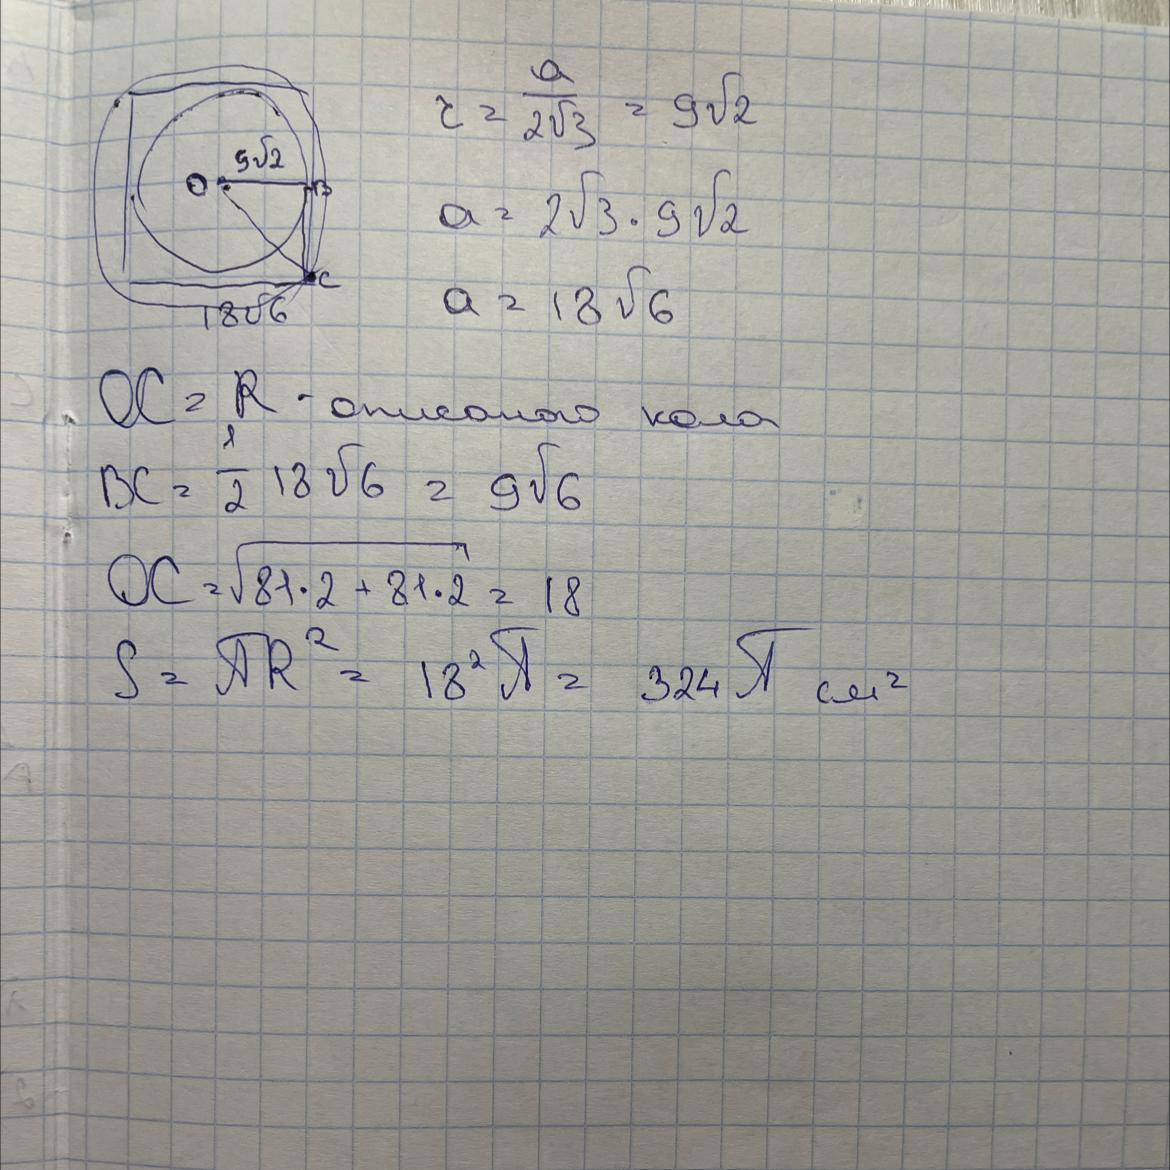 r = a/2√3 = 9√2
9√2
O
B
a = 2√3 · 9√2
C
18√6
a = 18√6
OC = R - описаного кола
BC = 1/2 18√6 = 9√6
OC = √81·2 + 81·2 = 18
S = πR² = 18²π = 324π см²